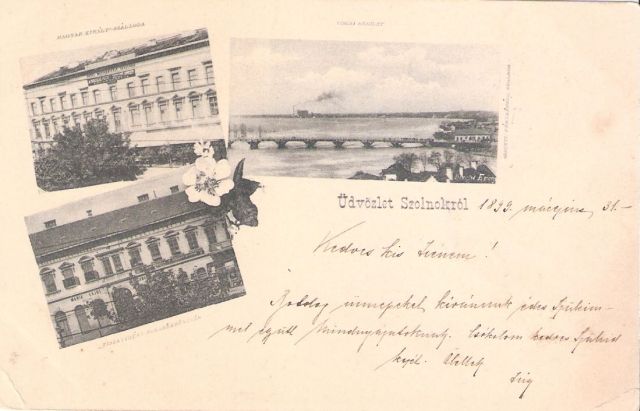 MAGYAR KIRÁLY-SZÁLLODA
TISZAI RÉSZLET
Üdvözlet Szolnokról 1899. március 31.-
Kedves kis Irénem!
Boldog ünnepeket kívánunk édes Szüleim-
mel együtt Mindnyájatoknak. Csókolom kedves Szüleid
kezét. Ölellek